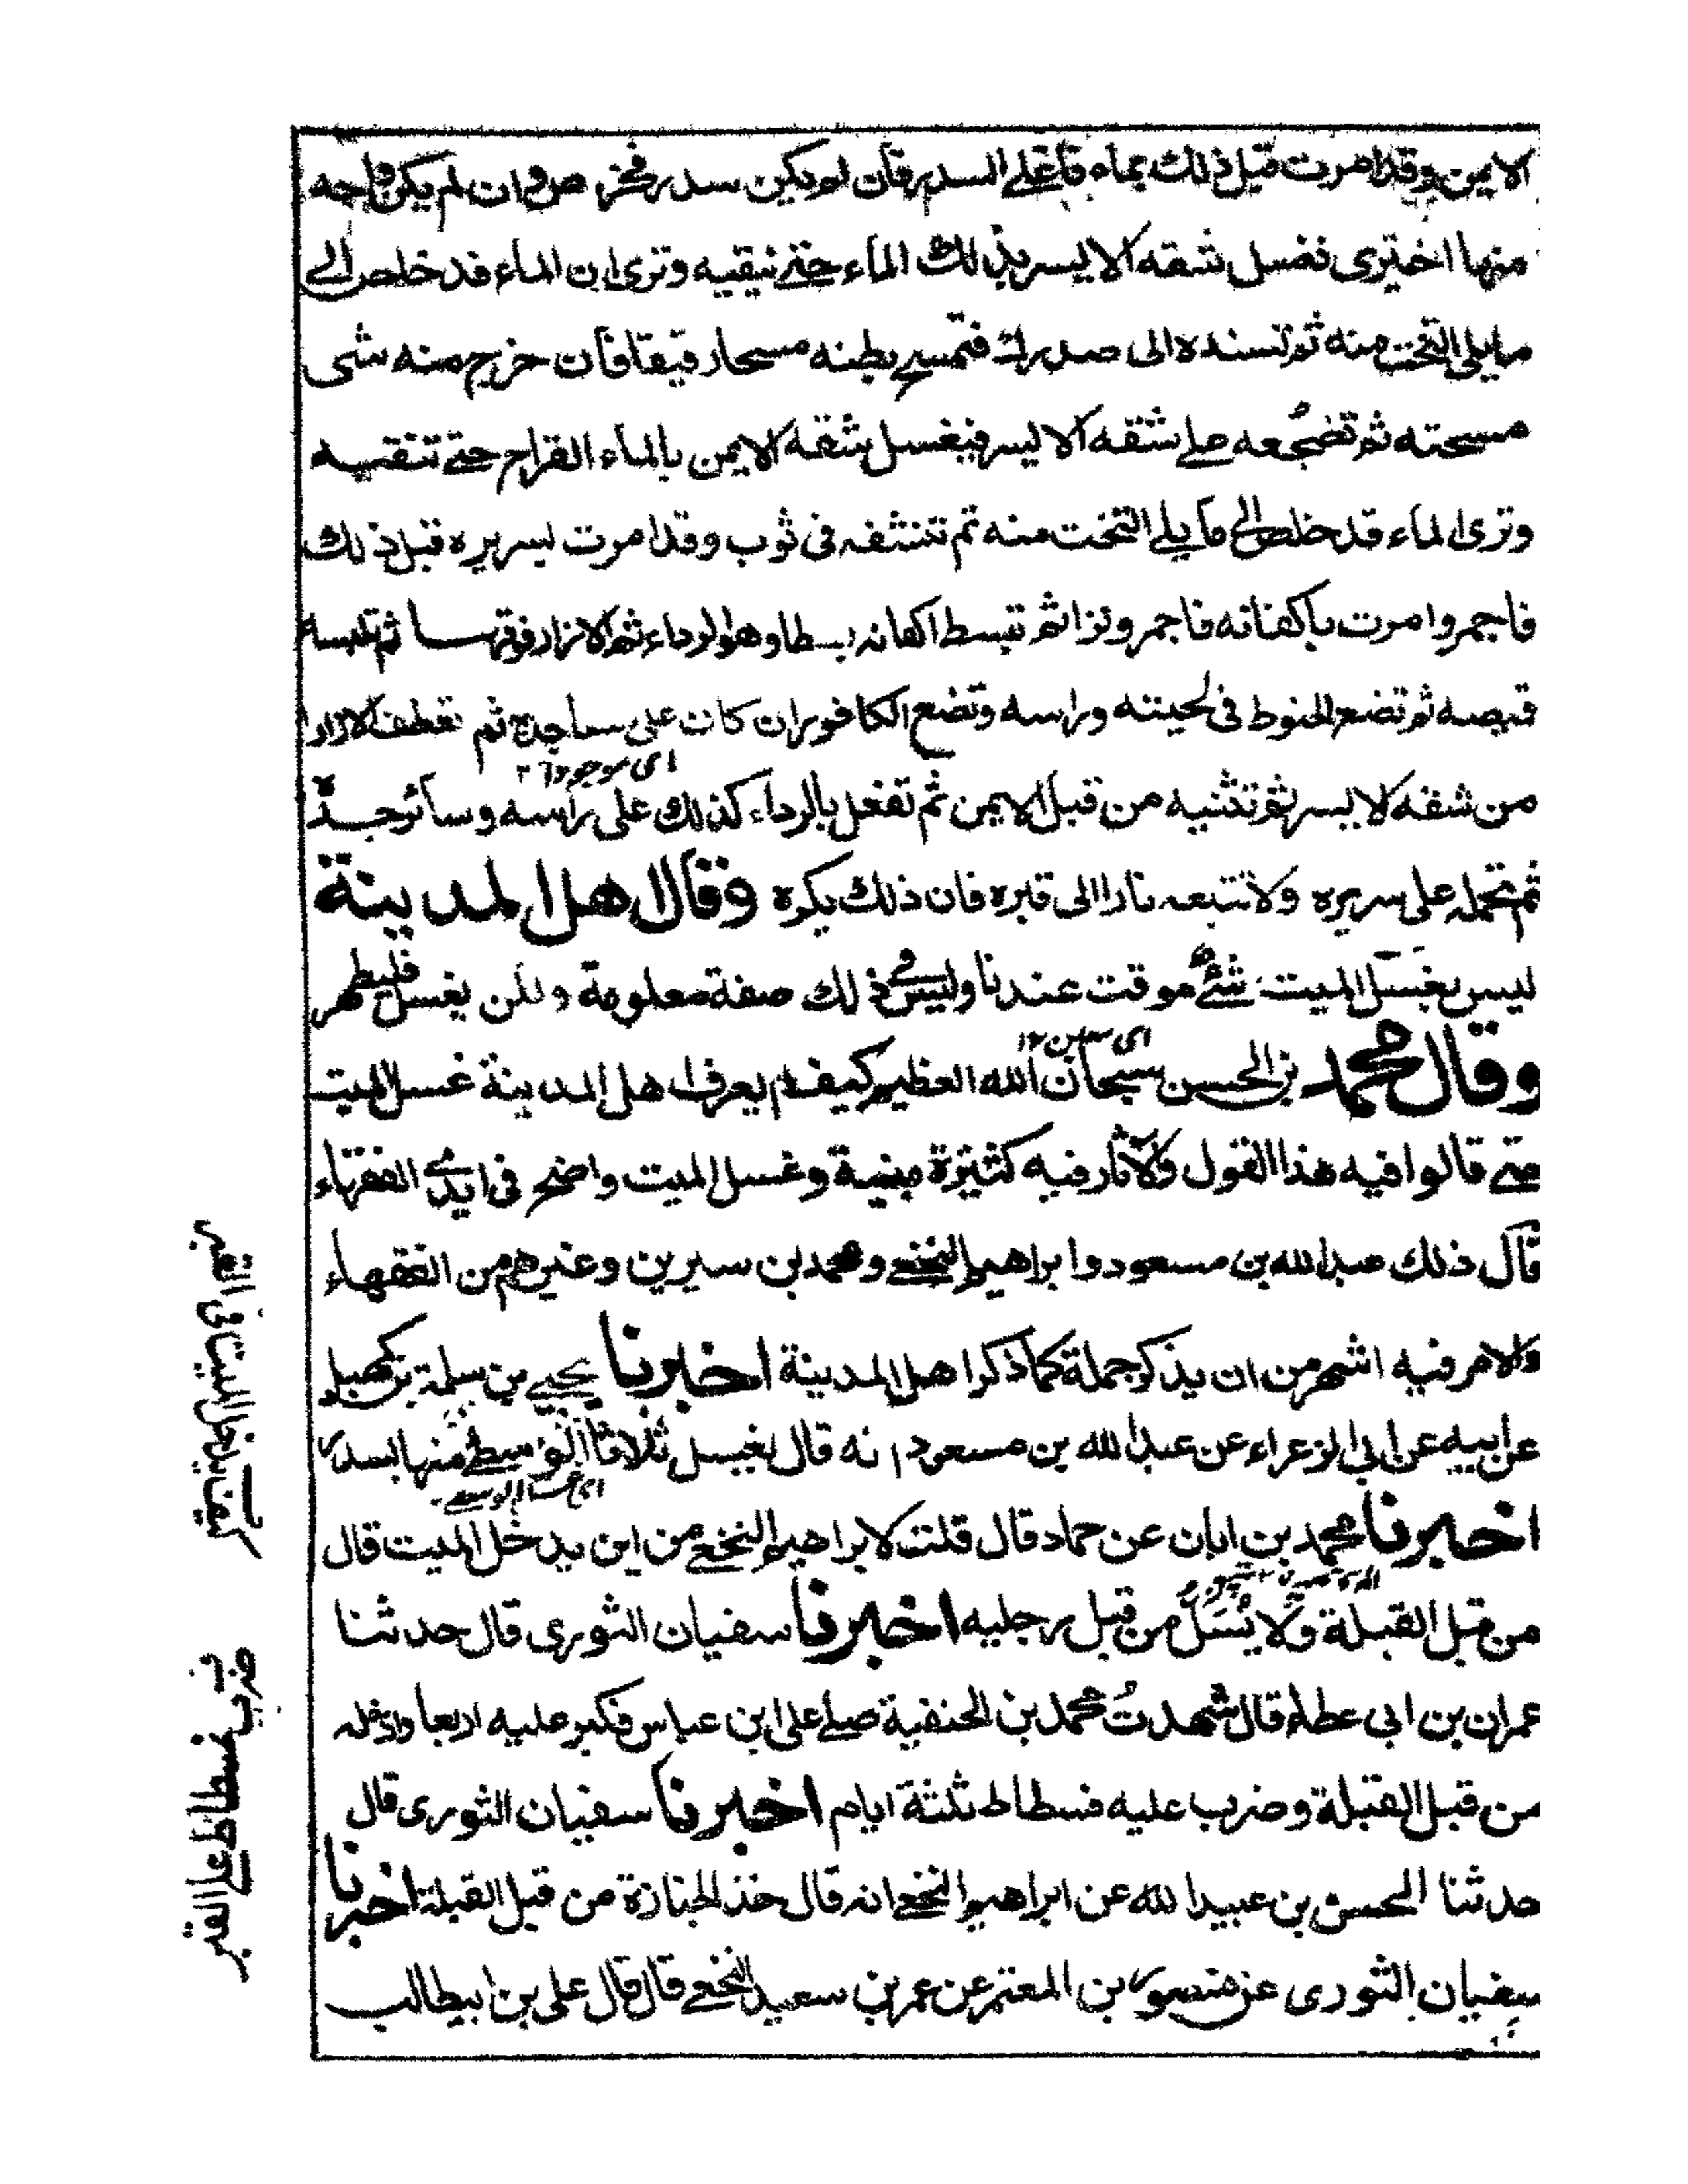 الايمن وقد امرت قبل ذلك بماء فأغلي السدر فأن لم يكن سدر فحرض وان لم يكن واحد
منهما اختري فغسل شقه الايسر بذلك الماء حتى ينقيه وترى ان الماء قد خلص الى
ما يلي التخت منه ثم تسنده الى صدرك فتمسح بطنه مسحا رقيقا فأن خرج منه شى
مسحته ثم تضجعه على شقه الايسر فيغسل شقه الايمن بالماء القراح حتى تنقيه
وترى الماء قد خلص الى ما يلي التخت منه ثم تنشفه فى ثوب وقد امرت بسريره قبل ذلك
فاجمر وامرت باكفانه فاجمر وترا ثم تبسط اكفانه بسطا وهو الرداء ثم الازار فوقها ثم تلبسه
قميصه ثم تضع الحنوط فى لحيته وراسه وتضع الكافور ان كان على مساجده ثم تعطف الازار
اى موجودا ١٢
من شقه الايسر ثم تثنيه من قبل الايمن ثم تفعل بالرداء كذلك على رأسه وسائر جسده
ثم تحمله على سريره ولا تتبعه نارا الى قبره فان ذلك يكره وقال اهل المدينة
ليس بغسل الميت شئ موقت عندنا وليس فى ذلك صفة معلومة ولكن يغسل فليطهر
وقال محمد بن الحسن سبحان الله العظيم كيف لم يعرف اهل المدينة غسل الميت
حتى قالوا فيه هذا القول والآثار فيه كثيرة مبنية وغسل الميت واضح فى ايدى الفقهاء
قال ذلك عبد الله بن مسعود وابراهيم النخعي ومحمد بن سيرين وغيرهم من الفقهاء
والامر فيه اشهر من ان يذكر جملة كما ذكر اهل المدينة اخبرنا يحيى بن سلمة بن كهيل
عن ابيه عن ابي الزعراء عن عبد الله بن مسعود انه قال يغسل ثلاثا الوسطى منها بسدر
اخبرنا محمد بن ابان عن حماد قال قلت لابراهيم النخعي من اين يدخل الميت قال
من قبل القبلة ولا يسل من قبل رجليه اخبرنا سفيان الثورى قال حدثنا
عمران بن ابى عطاء قال شهدت محمد بن الحنفية صلى على ابن عباس فكبر عليه اربعا وادخله
من قبل القبلة وضرب عليه فسطاط ثلثة ايام اخبرنا سفيان الثورى قال
حدثنا الحسن بن عبيد الله عن ابراهيم النخعي انه قال خذ الجنازة من قبل القبلة اخبرنا
سفيان الثورى عن منصور بن المعتمر عن عمر بن سعيد النخعي قال قال على بن ابيطالب
كيف يدخل الميت فى القبر
ضرب فسطاط على القبر